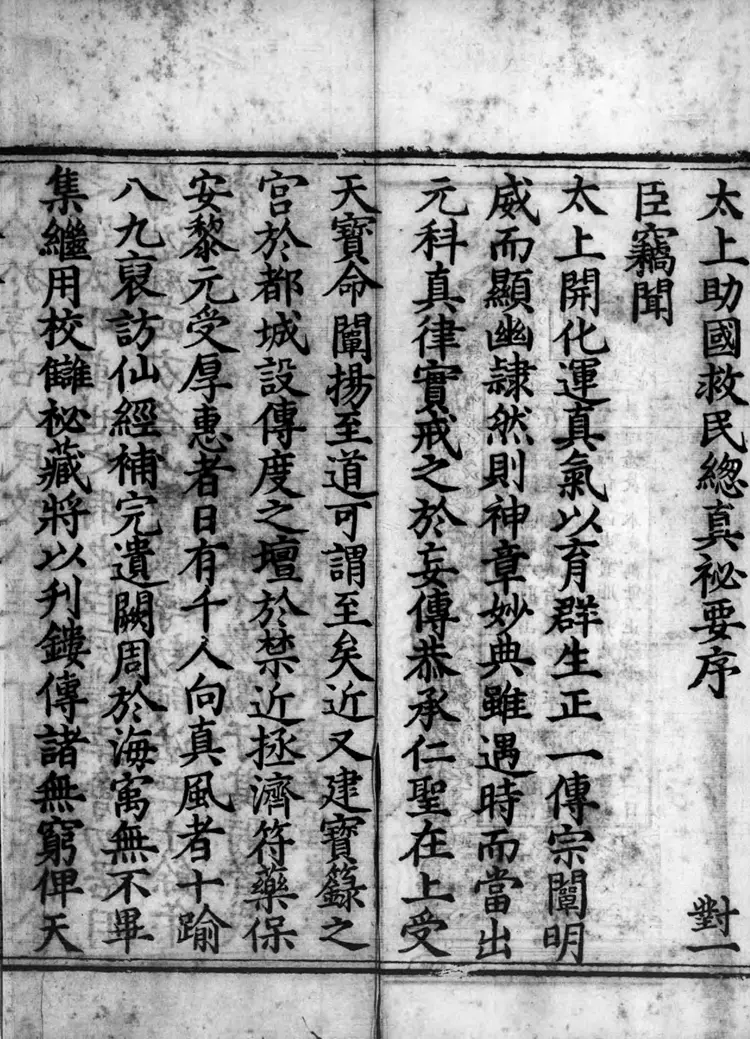 太上助國救民總真祕要序 對一
臣竊聞
太上開化運真氣以育群生正一傳宗闡明
威而顯幽隷然則神章妙典雖遇時而當出
元科真律實戒之於妄傳恭承仁聖在上受
天寶命闡揚至道可謂至矣近又建寶籙之
宮於都城設傳度之壇於禁近拯濟符藥保
安黎元受厚惠者日有千人向真風者十踰
八九裒訪仙經補完遺闕周於海㝢無不畢
集繼用校讎祕藏將以刋鏤傳諸無窮俾天